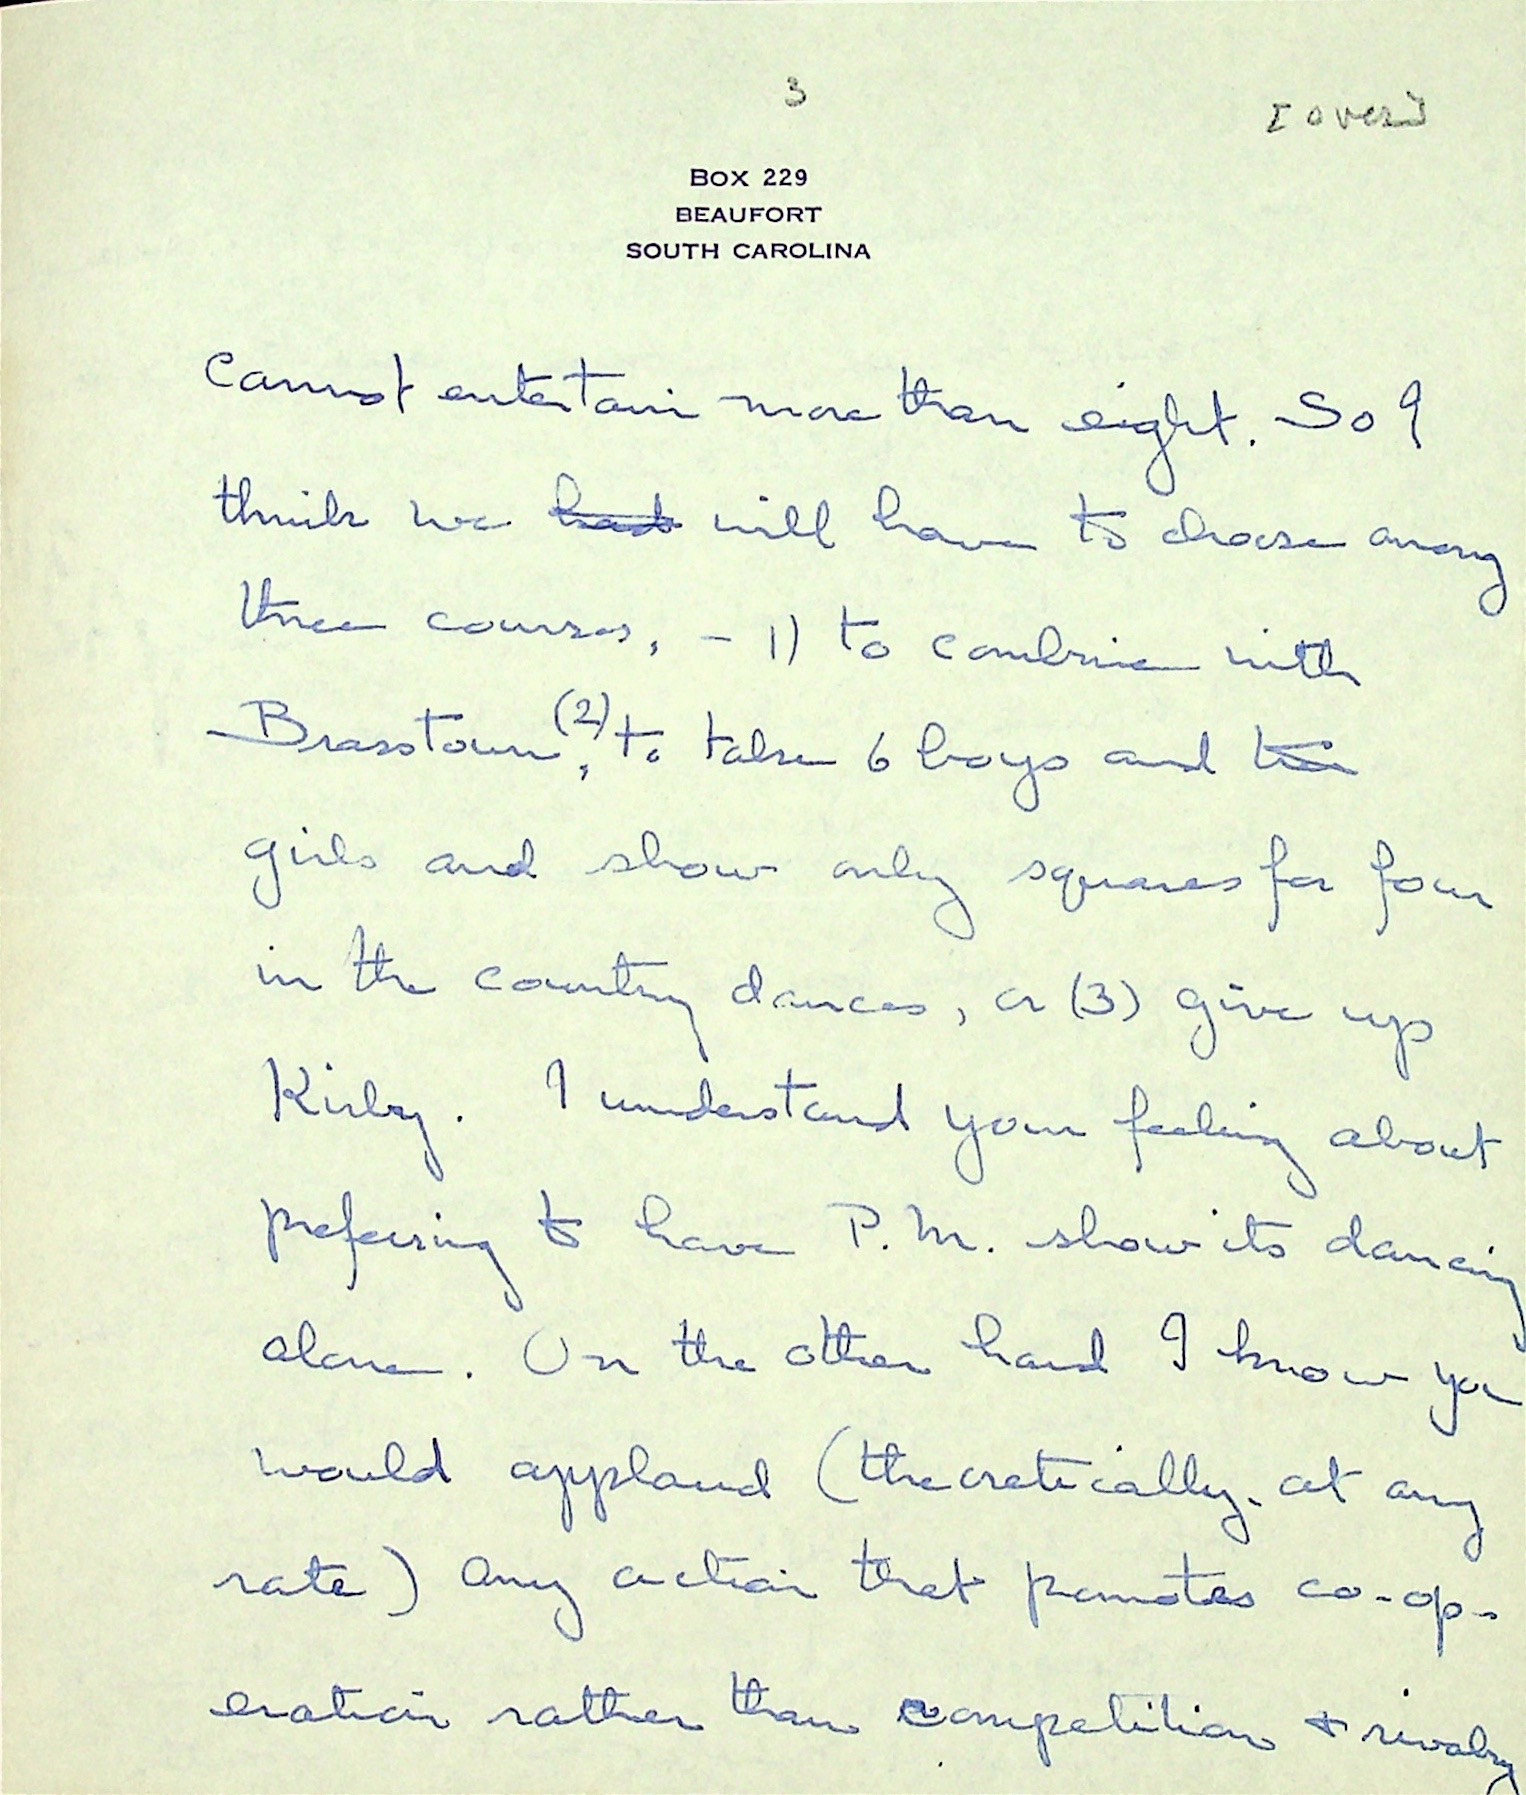 3
[over]
BOX 229
BEAUFORT
SOUTH CAROLINA
cannot entertain more than eight. So I
think we had will have to choose among
three courses, - 1) to combine with
Brasstown, (2) to take 6 boys and
girls and show only squares for four
in the country dances, or (3) give up
Kirby. I understand your feeling about
prefering to have P.M. show its dancing
alone. On the other hand I know you
would applaud (theoretically. at any
rate) any action that promotes co-op-
eration rather than competition + rivalry